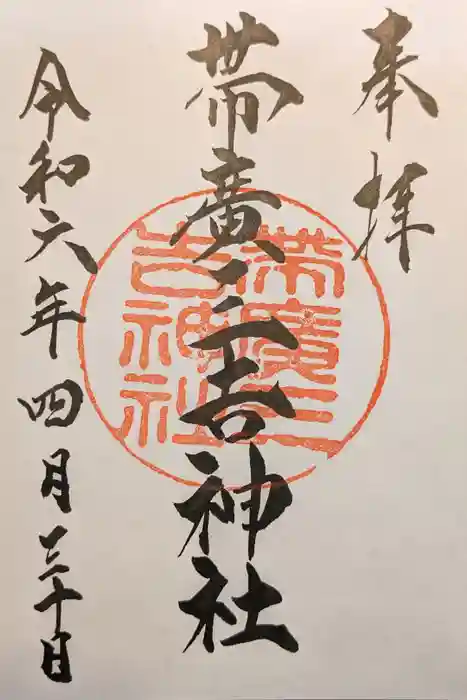 奉拝
帯廣三吉神社
帯廣三
吉神社
令和六年四月三十日